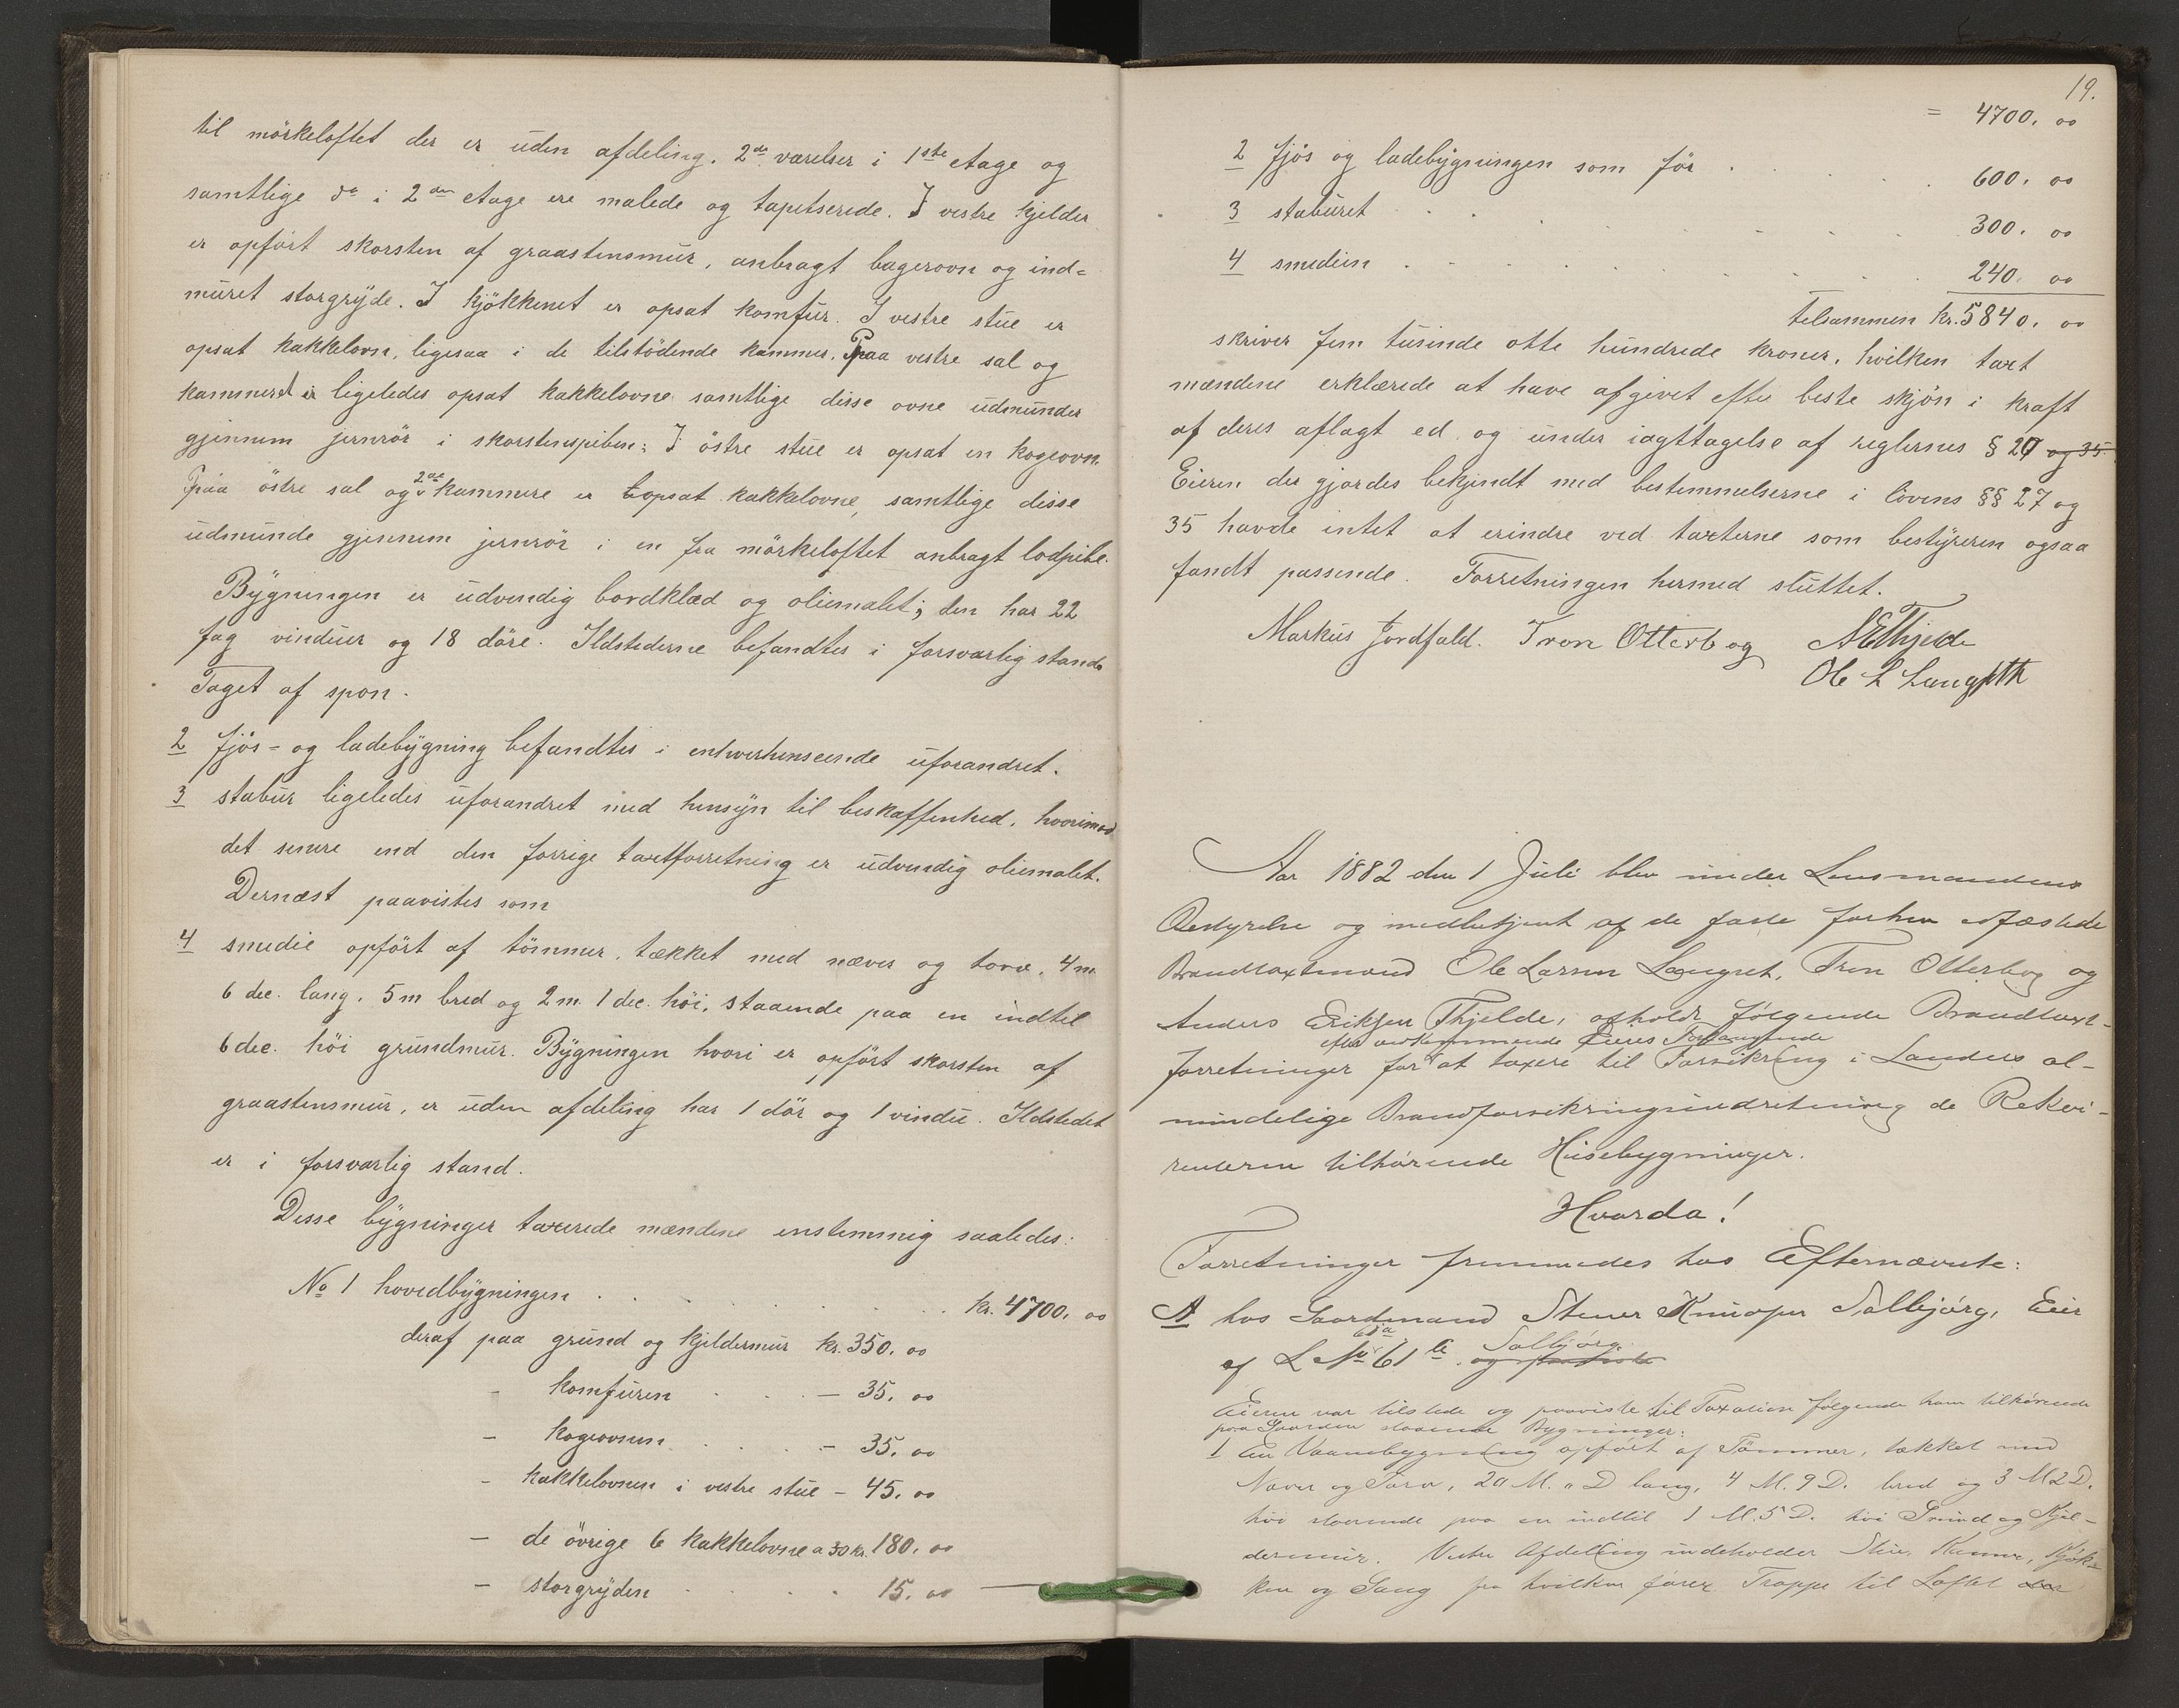 til mörkeloftet der er uden afdeling. 2de værelser i 1ste etage og
samtlige do i 2den etage ere malede og tapetserede. I vestre kjelder
er opført skorsten af graastensmur, anbragt bagerovn og ind=
muret storgryde. I kjökkenet er opsat komfur. I vestre stue er
opsat kakkelovn, ligesaa i de tilstödende kammer. Paa vestre sal og
kammerset er ligeledes opsat kakkelovne samtlige disse ovne udmunder
gjennem jernrör i skorstenspiben. I östre stue er opsat en kogeovn.
Paa östre sal og 2de kammere er opsat kakkelovne, samtlige disse
udmunde gjennem jernrör i en fra mörkeloftet anbragt lodpibe.
Bygningen er udvendig bordklæd og oliemalet; den har 22
fag vinduer og 18 döre. Ildstederne befandtes i forsvarlig stand
Taget af spon.
2 fjös- og ladebygning befandtes i enhverhenseende uforandret.
3 stabur ligeledes uforandret med hensyn til beskaffenhed, hvorimod
det senere end den forrige taxtforretning er udvendig oliemalet.
Dernæst paavistes som
4 smedie opfört af tömmer, tækket med næver og torv, 4 m.
6 dec. lang, 5 m bred og 2 m. 1 dec. höi, staaende paa en indtil
6 dec. höi grundmur. Bygningen hvori er opfört skorsten af
graastensmur, er uden afdeling har 1 dör og 1 vindu. Ildstedet
er i forsvarlig stand.
Disse bygninger taxerede mændene enstemmig saaledes:
No 1 hovedbygningen . . . kr. 4700. 00
deraf paa grund og kjeldermur kr. 350. 00
- komfuren . . . - 35. 00
- kogeovnen . . . - 35. 00
- kakkelovnen i vestre stue - 45. 00
- de övrige 6 kakkelovne a 30 kr. 180. 00
- storgryden . . . 15. 00
19.
= 4700. 00
2 fjös og ladebygningen som för . . . 600. 00
3 staburet . . . 300. 00
4 smedien . . . 240. 00
tilsammen kr. 5840. 00
skriver fem tusinde otte hundrede kroner, hvilken taxt
mændene erklærede at have afgivet efter beste skjön i kraft
af deres aflagt ed og under iagttagelse af reglernes § 20 og 35.
Eieren der gjordes bekjendt med bestemmelserne i lovens §§ 27 og
35 havde intet at erindre ved taxterne som bestyreren ogsaa
fandt passende. Forretningen hermed sluttet.
Markus Jordfald. Tron Otterbog AEThjelde
Ole L Langseth
Aar 1882 den 1 Juli blev under Lensmandens
Bestyrelse og medbetjent af de faste forhen edfæstede
Brandtaxtmænd Ole Larsen Langset, Tron Otterbog og
Anders Eriksen Thjelde, afholdt følgende Brandtaxt-
efter vedkommende Eiers Forlangende
forretninger for at taxere til Forsikring i Landets al-
mindelige Brandforsikringsindretning de Rekvi-
renterne tilhørende Husebygninger.
Hvorda!
Forretninger fremmedes hos Efternævnte:
A hos Gaardmand Stener Knudsen Solbjørg, Eier
61a Solbjørg
af L No 61 b.
Eieren var tilstede og paaviste til Taxation følgende ham tilhørende
paa Gaarden staaende Bygninger:
1 En Vaanebygning opført af Tømmer, tækket med
Næver og Torv, 20 M. " D lang, 4 M. 9 D. bred og 3 M 2 D.
høi staaende paa en indtil 1 M. 5 D. høi Grund og Kjel-
dermur. Vestre Afdeling indeholder Stue, Kammer, Kjøk-
ken og Gang fra hvilken fører Trappe til Loftet der